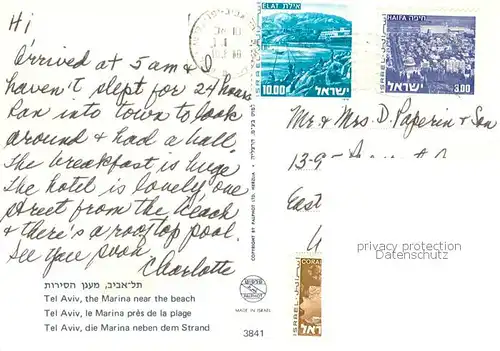 Hi
Arrived at 5 am & I
haven't slept for 24 hours
Ran into town to look
around & had a ball.
The breakfast is huge
The hotel is lovely one
street from the beach
& there's a rooftop pool.
See you soon
Charlotte
תל-אביב, מעגן הסירות
Tel Aviv, the Marina near the beach
Tel Aviv, le Marina près de la plage
Tel Aviv, die Marina neben dem Strand
COPYRIGHT BY PALPHOT LTD. HERZLIA
PALPHOT
MADE IN ISRAEL
3841
ELAT אילת
ISRAEL
10.00 ישראל
HAIFA חיפה
ISRAEL
ישראל 3.00
Mr & Mrs. D. Paperin & Son
13-9
East
privacy protection
Datenschutz
ISRAEL